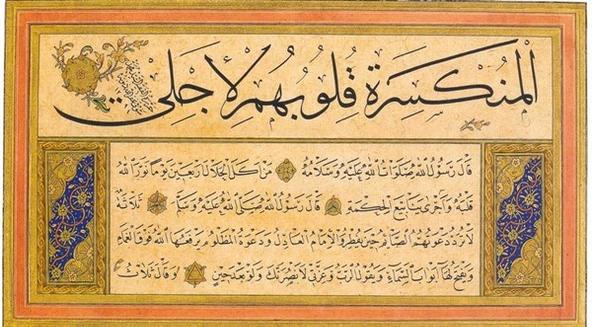 المنكسرة قلوبهم لأجلي
قال رسول الله صلوات الله عليه وسلامه من أكل الحلال أربعين يوما نور الله
قلبه وأجرى ينابيع الحكمة قال رسول الله صلى الله عليه وسلم ثلاثة
لا ترد دعوتهم الصائم حين يفطر والإمام العادل ودعوة المظلوم يرفعها الله فوق الغمام
ويفتح لها أبواب السماء ويقول الرب وعزتي لأنصرنك ولو بعد حين وقال ثلاث